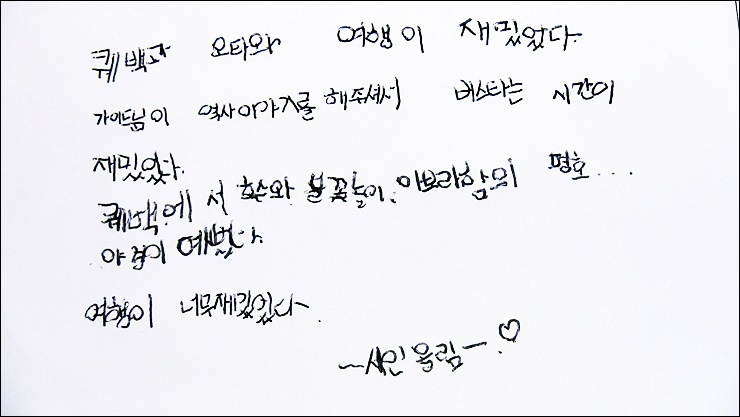 퀘백과 오타와 여행이 재밌었다.
가이드님이 역사이야기를 해주셔서 버스타는 시간이
재밌었다.
퀘백에서 호수와 불꽃놀이, 아브라함의 평호...
야경이 예뻤다.
여행이 너무재미있었다
~시인 올림ㅡ.♡